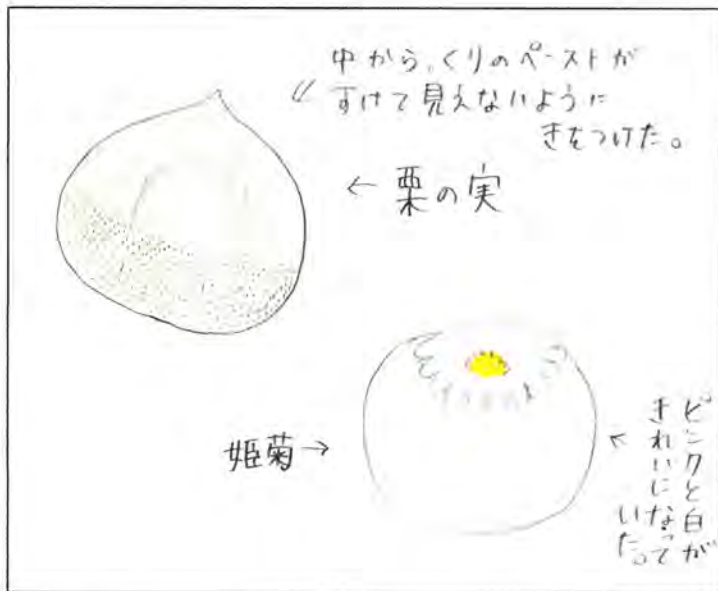 中から、くりのペーストが
すけて見えないように
きをつけた。
← 栗の実
姫菊→
ピンクと白が
きれいになって
いた。